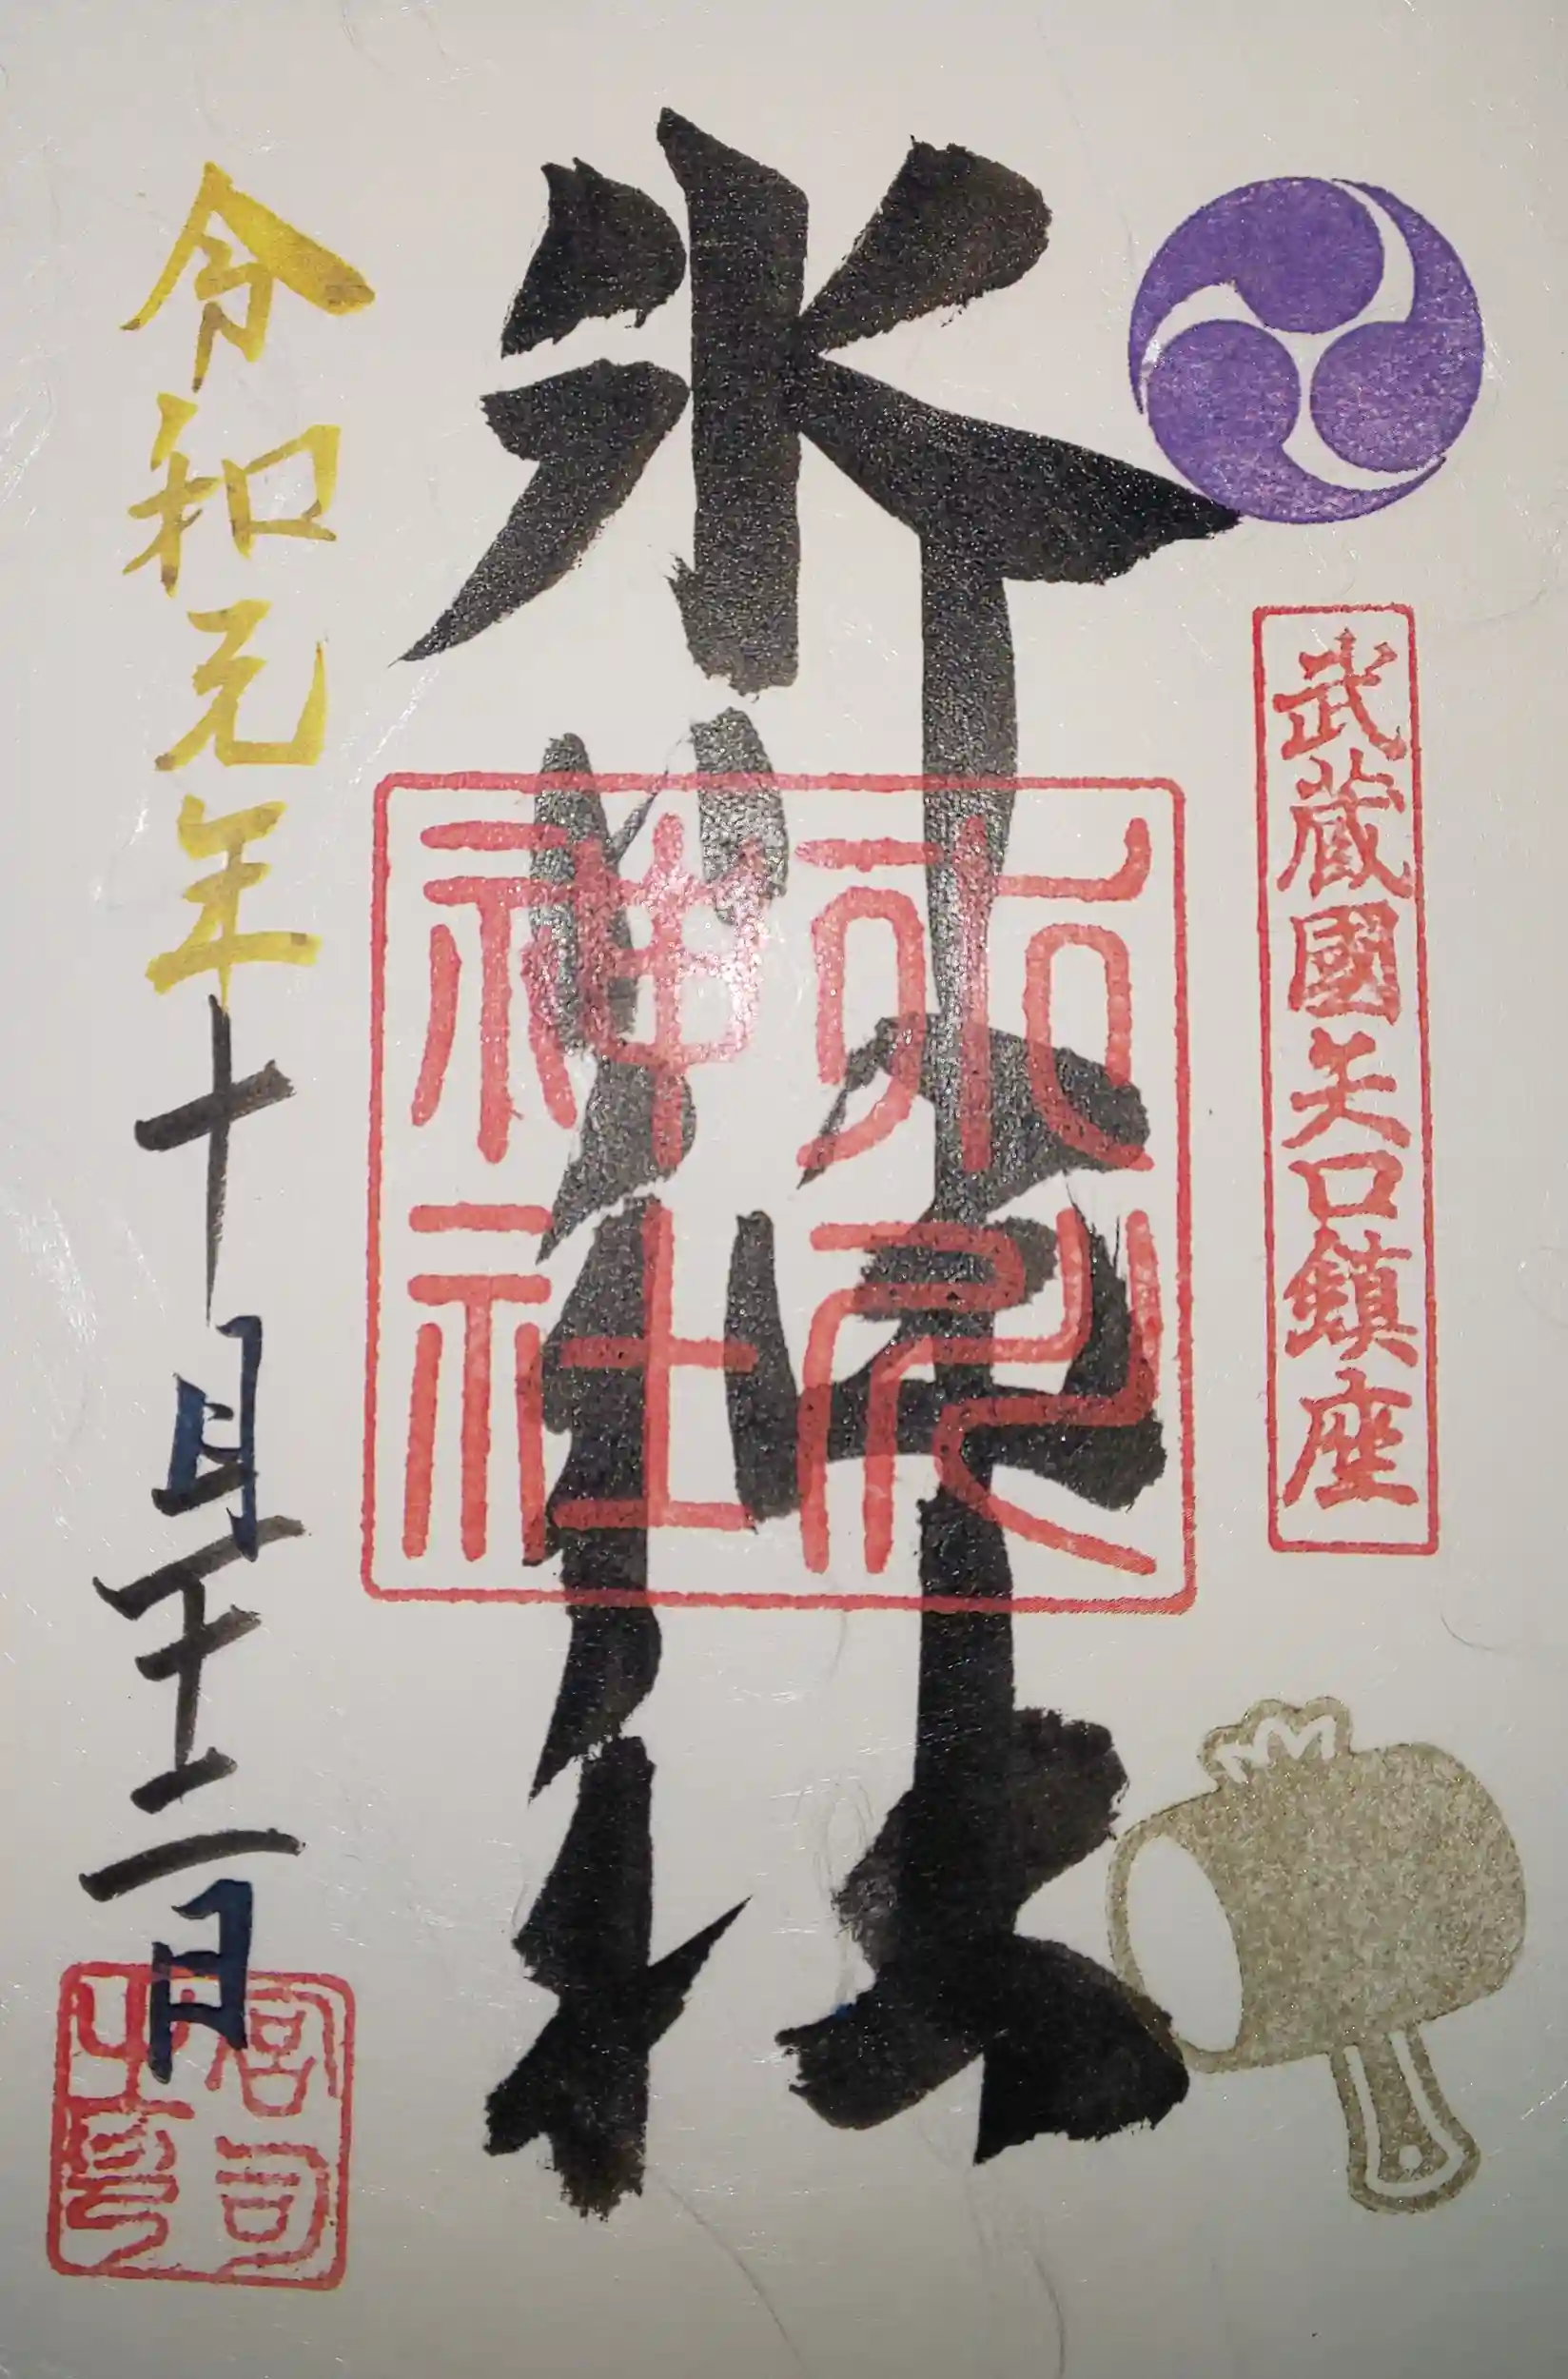 武蔵國矢口鎮座
氷川神社
令和元年十月二十二日
宮司之印